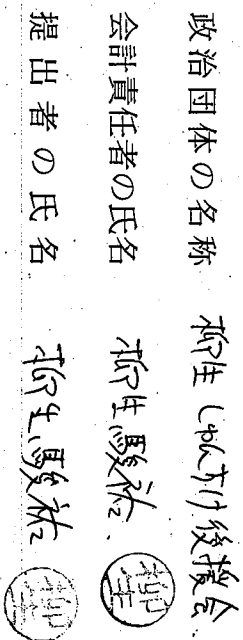 政治団体の名称 柳生しゅんすけ後援会
会計責任者の氏名 柳生駿祐 柳生
提出者の氏名 柳生駿祐 柳生